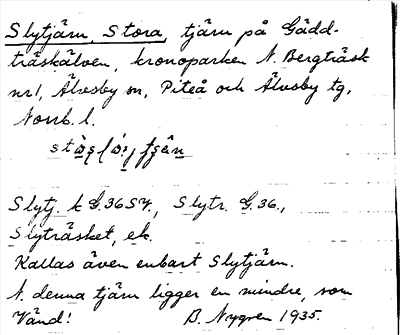 Slytjärn, Stora, tjärn på Gädd-
träskälven, kronoparken N. Bergträsk
nr 1, Älvsby sn, Piteå och Älvsby tg,
Norrb. l.
Slytj. k G.36SV., Slytr. G.36.,
Slyträsket, ek.
Kallas även enbart Slytjärn.
N. denna tjärn ligger en mindre, som
Vänd! B. Nygren 1935.